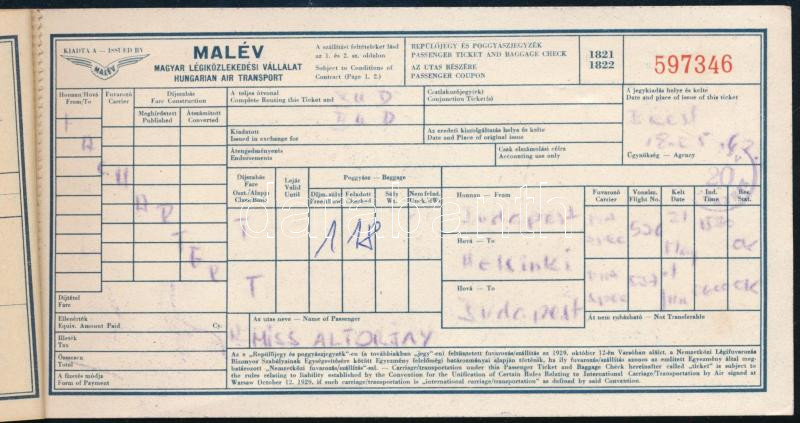 KIADTA A — ISSUED BY
MALÉV
MALÉV
MAGYAR LÉGIKÖZLEKEDÉSI VÁLLALAT
HUNGARIAN AIR TRANSPORT
A szállítási feltételeket lásd
az 1. és 2. sz. oldalon
Subject to Conditions of
Contract (Page 1, 2.)
REPÜLŐJEGY ÉS POGGYÁSZJEGYZÉK
PASSENGER TICKET AND BAGGAGE CHECK
AZ UTAS RÉSZÉRE
PASSENGER COUPON
1821
1822
597346
Honnan/Hová
From/To
Fuvarozó
Carrier
Díjszabás
Fare Construction
Meghirdetett
Published
Átszámított
Converted
A teljes útvonal
Complete Routing this Ticket and
Csatlakozójegy(ek)
Conjunction Ticket(s)
A jegykiadás helye és kelte
Date and place of issue of this ticket
Kiadatott
Issued in exchange for
Az eredeti kiszolgáltatás helye és kelte
Date and Place of original issue
Átengedményezés
Endorsements
Csak elszámolási célra
Accounting use only
Ügynökség — Agency
Díjszabás
Fare
Oszt./Alapj
Class/Basis
Lejár
Valid
Until
Poggyász — Baggage
Díjm. súly
Free/ill awd
Feladott
Checked
Súly
Wt.
Nem felad.
Unck. d Wt.
Honnan — From
Fuvarozó
Carrier
Vonalsz.
Flight No.
Kelt
Date
Ind.
Time
Res.
Stat.
T
1 18
Budapest
Hová — To
Helsinki
T
Hová — To
Budapest
Át nem ruházható — Not Transferable
Díjtétel
Fare
Ellenérték
Equiv. Amount Paid Cy.
Illeték
Tax
Összesen
Total
A fizetés módja
Form of Payment
Az utas neve — Name of Passenger
MISS ALTORJAY
Az e „Repülőjegy és poggyászjegyzék"-en (a továbbiakban „jegy"-en) feltüntetett fuvarozás/szállítás az 1929. október 12-én Varsóban aláírt, a Nemzetközi Légifuvarozás
Bizonyos Szabályainak Egységesítésére kötött Egyezmény felelősségi határozmányai alapján történik, ha ily fuvarozás/szállítás azonos az említett Egyezmény által meg-
határozott „Nemzetközi fuvarozás/szállítás"-sal. — Carriage/transportation under this Passenger Ticket and Baggage Check hereinafter called "ticket" is subject to
the rules relating to liability established by the Convention for the Unification of Certain Rules Relating to International Carriage/Transportation by Air signed at
Warsaw October 12. 1929, if such carriage/transportation is "international carriage/transportation" as defined by said Convention.